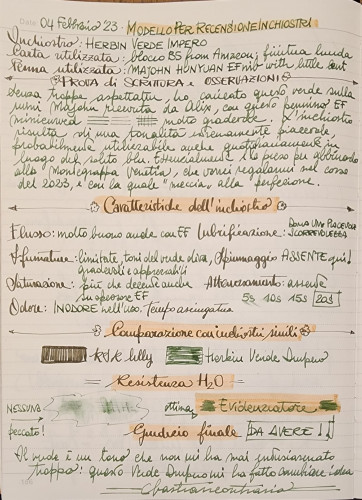 Date 04 Febbraio '23 - MODELLO PER RECENSIONE INCHIOSTRI
Inchiostro: HERBIN VERDE IMPERO
Carta utilizzata: blocco B5 from Amazon; finitura lucida
Penna utilizzata: MAJOHN HUNYUAN EF nib with little
PROVA di SCRITTURA e OSSERVAZIONI
Senza troppe aspettative, ho caricato questo verde sulla
Majohn ricevuta da Alix, con questo pennino EF
molto gradevole. L'inchiostro
risulta di una tonalità estremamente piacevole,
probabilmente utilizzabile anche quotidianamente in
luogo del solito blu. Essenzialmente l'ho preso per abbinarlo
alla Montegrappa Venetia, che vorrei regalarmi nel corso
del 2023, e con la quale "meccia" alla perfezione.
Caratteristiche dell'inchiostro
Flusso: molto buono anche con EF Lubrificazione: DONA UNA PIACEVOLE SCORREVOLEZZA
Sfumature: limitate, toni del verde oliva, Spiumaggio ASSENTE qui!
gradevoli e apprezzabili
Saturazione: più che decente anche Attraversamento: assente
su spessore EF
5s 10s 15s 20s
Odore: INODORE nell'uso. Tempo asciugatura
Comparazione con inchiostri simili
Herbin Verde Impero
Resistenza H2O
NESSUNA ottima Evidenziatore
peccato!
Giudizio finale DA AVERE!!
Il verde è un tono che non mi ha mai entusiasmato
troppo: questo Verde Impero mi ha fatto cambiare idea